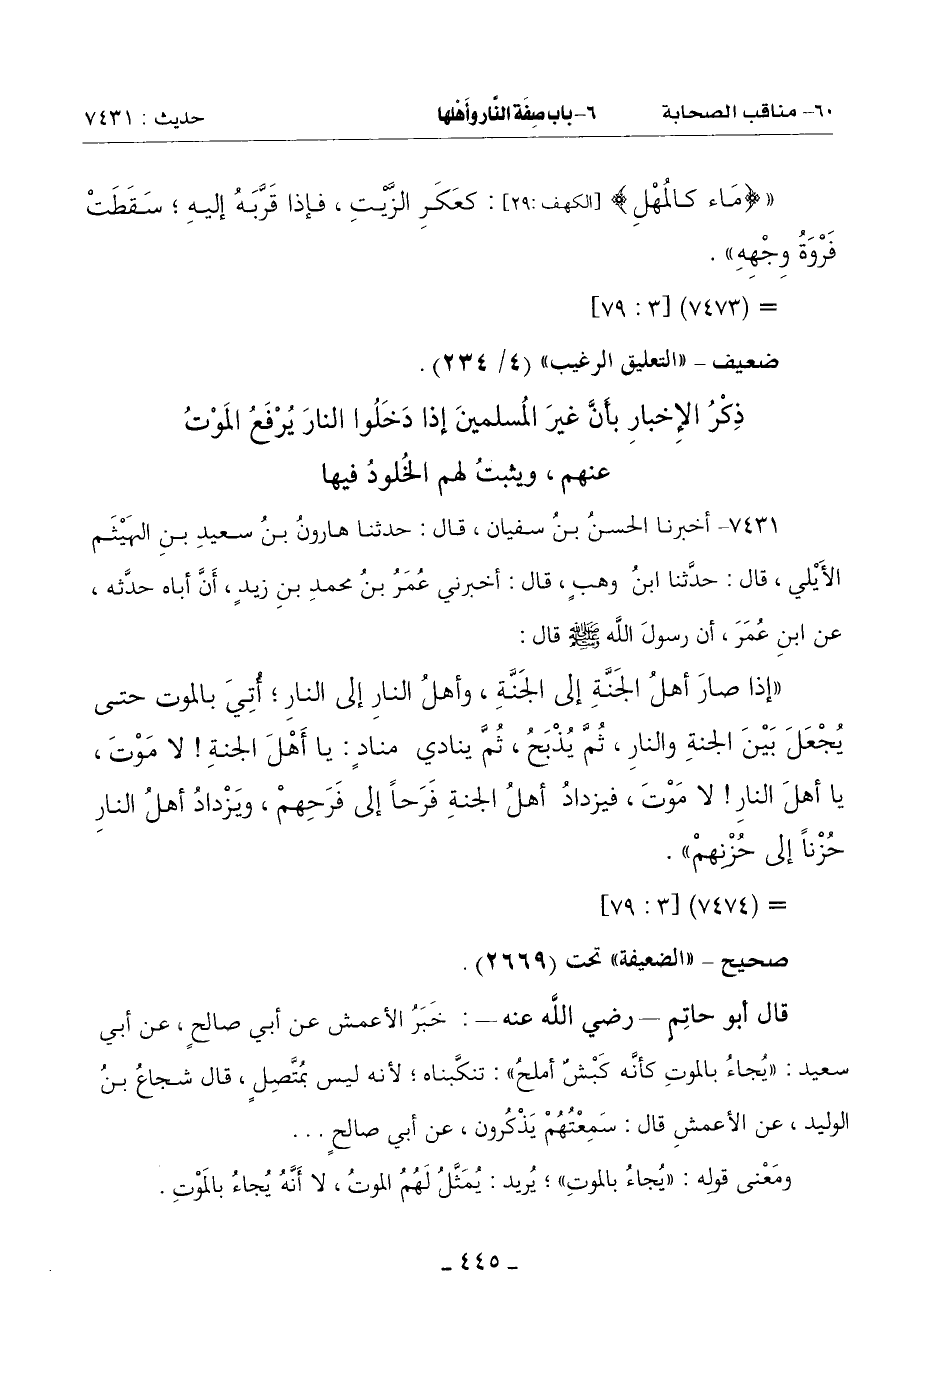 ٦٠- مناقب الصحابة ٦- باب صِفَة النَّار وأَهْلها حديث : ٧٤٣١
« ﴿مَاء كالمُهْلِ﴾ [الكهف :٢٩] : كعَكَرِ الزَّيْتِ ، فإذا قَرَّبَهُ إليهِ ؛ سَقَطَتْ
فَرْوَةُ وِجْهِهِ» .
= (٧٤٧٣) [٣ : ٧٩]
ضعيف – «التعليق الرغيب» (٤/ ٢٣٤) .
ذِكْرُ الإخبارِ بأنَّ غيرَ المُسلمينَ إذا دَخَلُوا النارَ يُرْفَعُ المَوْتُ
عنهم ، ويثبتُ لهم الخُلودُ فيها
٧٤٣١- أخبرنا الحسنُ بنُ سفيان ، قال : حدثنا هارونُ بنُ سعيدِ بنِ الهَيْثَمِ
الأَيْلي ، قال : حدَّثنا ابنُ وهبٍ ، قال : أخبرني عُمَرُ بنُ محمدِ بنِ زيدٍ ، أنَّ أباه حدَّثه ،
عن ابنِ عُمَرَ ، أن رسولَ اللَّه ﷺ قال :
«إذا صارَ أهلُ الجَنَّةِ إلى الجَنَّةِ ، وأهلُ النارِ إلى النار ؛ أُتِيَ بالموت حتى
يُجْعَلَ بَيْنَ الجنةِ والنارِ ، ثُمَّ يُذْبَحُ ، ثُمَّ ينادي منادٍ : يا أَهْلَ الجنةِ ! لا مَوْتَ ،
يا أهلَ النارِ ! لا مَوْتَ ، فيزدادُ أهلُ الجنةِ فَرَحاً إلى فَرَحِهِمْ ، ويَزْدادُ أهلُ النارِ
حُزْناً إلى حُزْنِهمْ» .
= (٧٤٧٤) [٣ : ٧٩]
صحيح – «الضعيفة» تحت (٢٦٦٩) .
قال أبو حاتِمٍ – رضي اللَّه عنه – : خَبَرُ الأعمش عن أبي صالحٍ ، عن أبي
سعيد : «يُجاءُ بالموتِ كأنَّه كَبْشٌ أملحُ» : تنكَّبناه ؛ لأنه ليس بمُتَّصِلٍ ، قال شجاعُ بنُ
الوليد ، عن الأعمشِ قال : سَمِعْتُهُمْ يَذْكُرون ، عن أبي صالحٍ ...
ومَعْنى قوله : «يُجاءُ بالموتِ» ؛ يُريد : يُمَثَّلُ لَهُمُ الموتُ ، لا أَنَّهُ يُجاءُ بالمَوْتِ .
– ٤٤٥ –